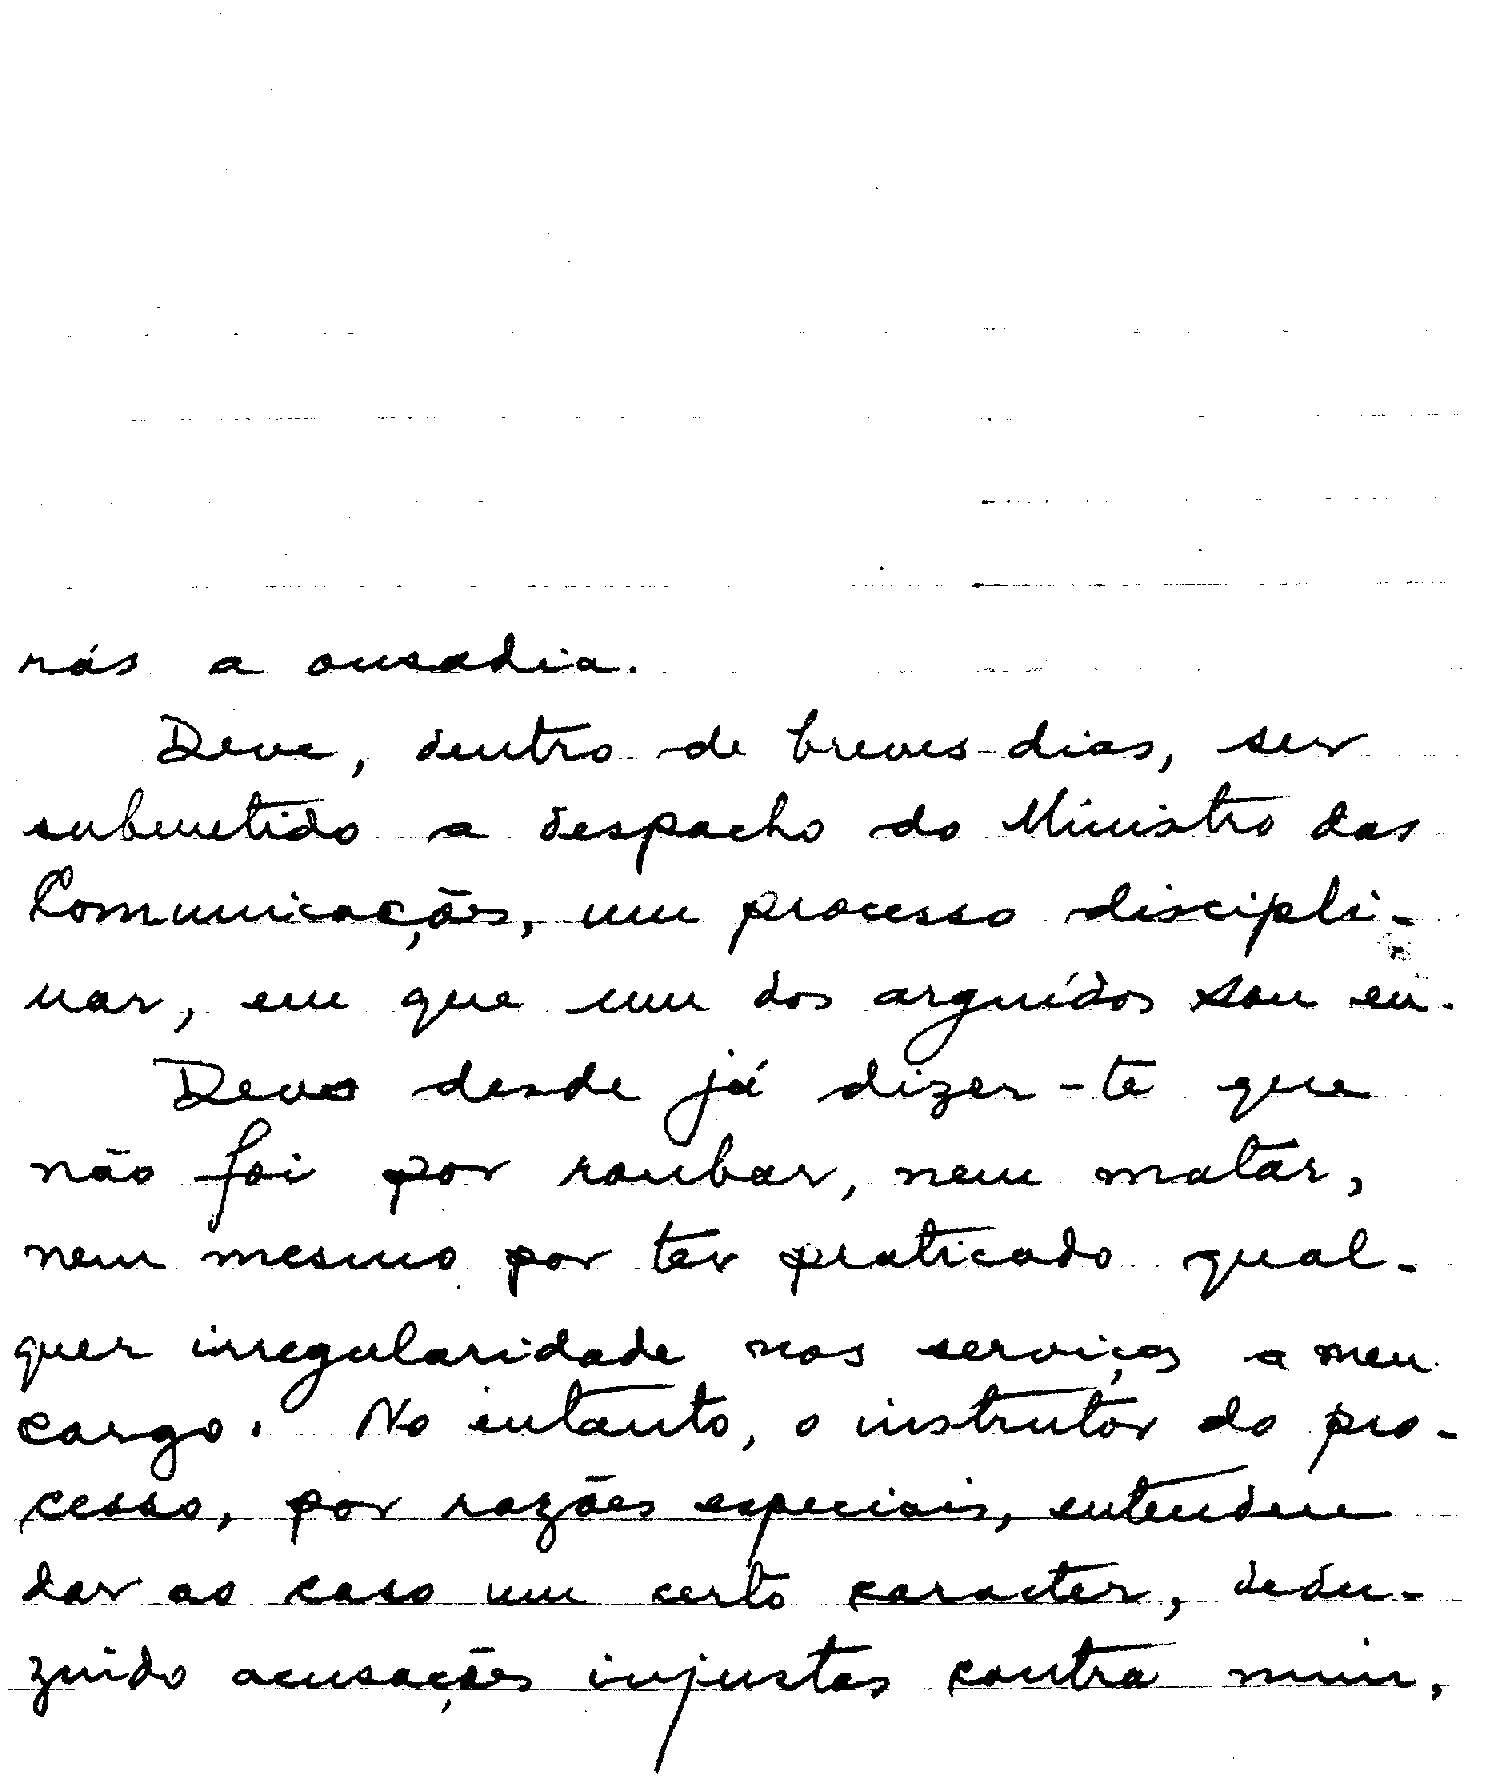 rás a ousadia.
Deve, dentro de breves dias, ser
submetido a despacho do Ministro das
Comunicações, um processo discipli-
nar, em que um dos arguídos sou eu.
Devo desde já dizer-te que
não foi por roubar, nem matar,
nem mesmo por ter praticado qual-
quer irregularidade nos serviços a meu
cargo. No intanto, o instrutor do pro-
cesso, por razões especiais, entendeu
dar ao caso um certo caracter, dedu-
zuido acusações injustas contra mim,